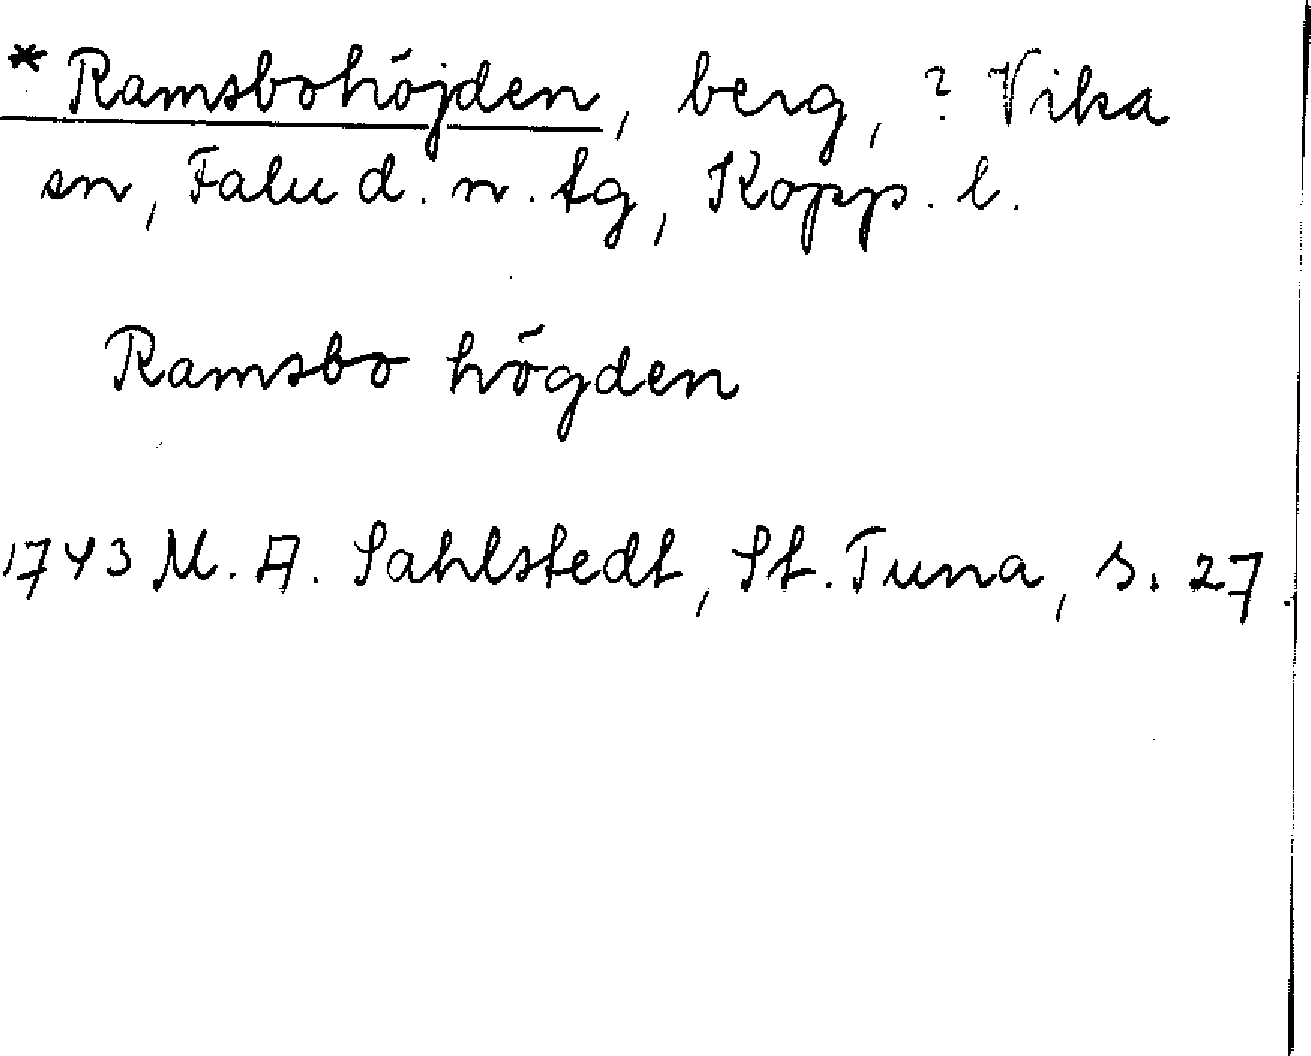 * Ramsbohöjden, berg, ? Vika
sn, Falu d. n. tg, Kopp. l.
Ramsbo högden
1743 M. A. Sahlstedt, St. Tuna, s. 27.